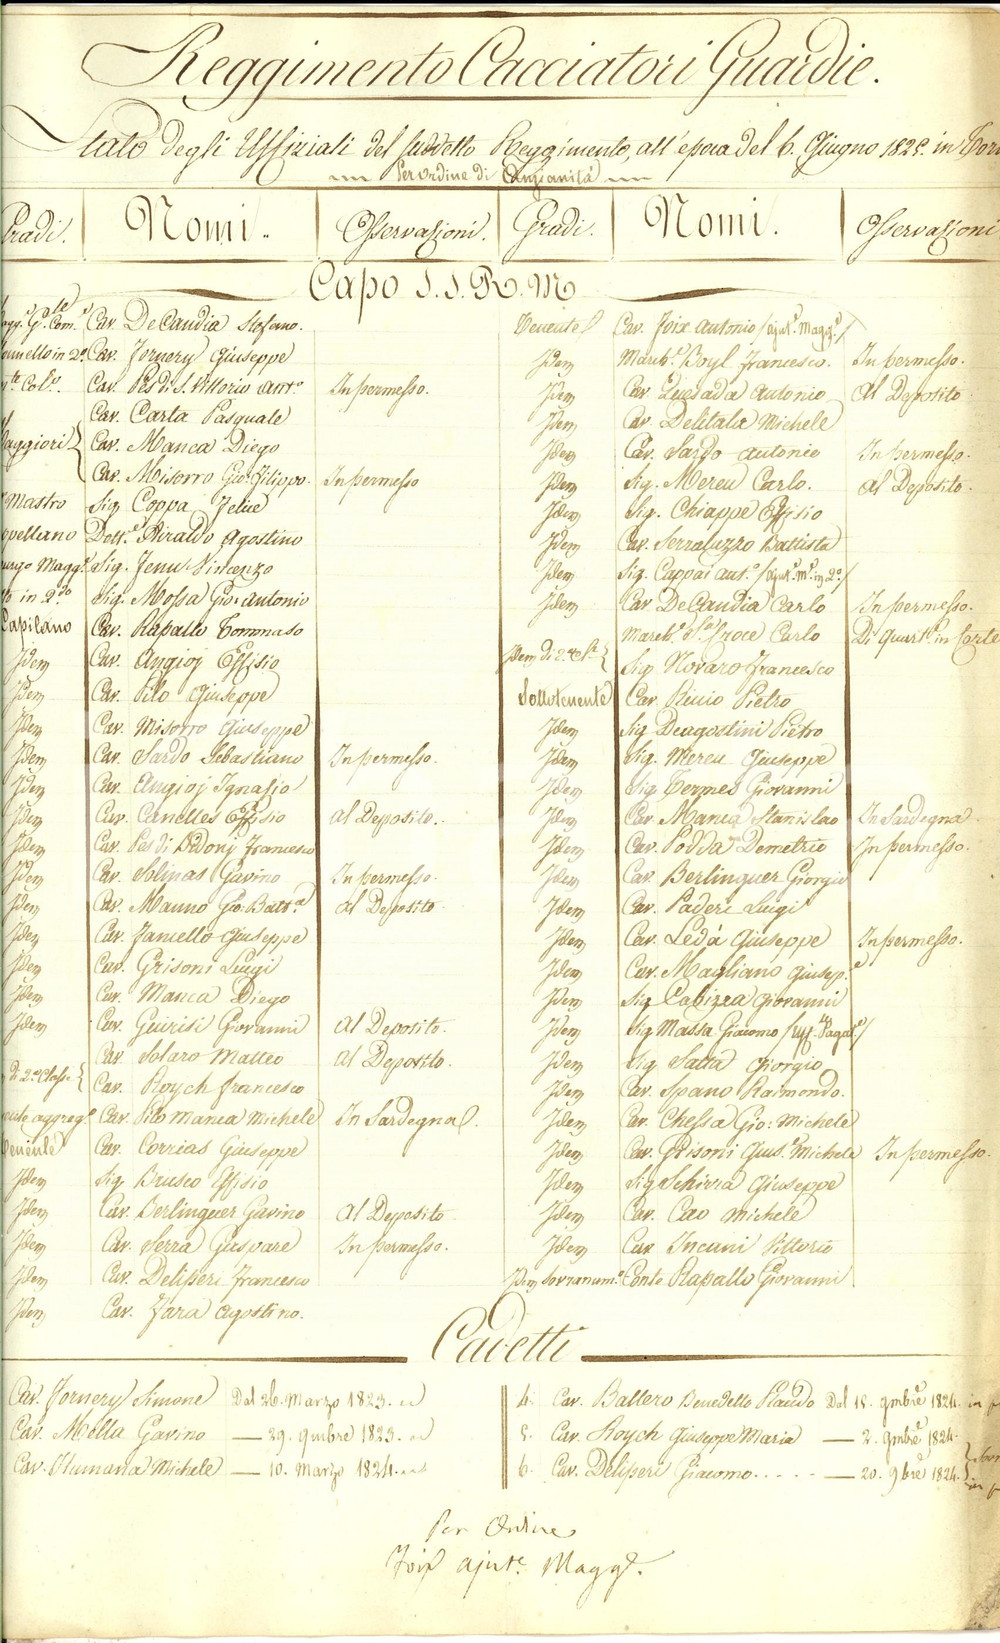 Reggimento Cacciatori Guardie.
Stato degli Uffiziali del suddetto Reggimento, all'epoca del 6. Giugno 1825. in
Per ordine di Anzianità
Gradi. Nomi. Osservazioni. Gradi. Nomi. Osservazioni
Capo S.S.R.M
Cav. DeCandia Stefano.
Cav. Fornery Giuseppe
Cav. Pes di S. Vittorio Ant.o In permesso.
Cav. Carta Pasquale
Maggiori Cav. Manca Diego
Cav. Misorro Gio. Filippo. In permesso
Mastro Sig. Coppa Felice
Dott.e Airaldo Agostino
Magg.e Sig. Fenu Vincenzo
in 2.do Sig. Mossa Gio. Antonio
Capitano Cav. Rapallo Tommaso
Idem Cav. Angioj Effisio
Idem Cav. Pilo Giuseppe
Idem Cav. Misorro Giuseppe
Idem Cav. Sardo Sebastiano In permesso.
Idem Cav. Angioj Ignazio
Idem Cav. Canelles Effisio Al Deposito.
Idem Cav. Pes di Dedonj Francesco
Idem Cav. Solinas Gavino In permesso.
Idem Cav. Manno Gio: Batt.a Al Deposito
Idem Cav. Fancello Giuseppe
Idem Cav. Grisoni Luigi
Idem Cav. Manca Diego
Idem Cav. Guirisi Giovanni Al Deposito.
Cav. Solaro Matteo Al Deposito.
di 2.a Classe Cav. Roych Francesco
aggreg.o Cav. Pilo Manca Michele In Sardegna.
Tenente Cav. Corrias Giuseppe
Idem Sig. Brusco Effisio
Idem Cav. Berlinguer Gavino Al Deposito
Idem Cav. Serra Gaspare In permesso.
Idem Cav. Deliperi Francesco
Idem Cav. Zara Agostino.
Tenente Cav. Foix Antonio /Ajut.e Magg.e/
Idem March.e Boyl Francesco. In permesso.
Idem Cav. Quesada Antonio Al Deposito
Idem Cav. Delitala Michele
Idem Cav. Sardo Antonio In permesso.
Idem Sig. Mereu Carlo. Al Deposito.
Idem Sig. Chiappe Effisio
Idem Cav. Serraluzzo Battista
Idem Sig. Cappai Ant.o /Ajut.e M.e in 2.o/
Idem Cav. DeCandia Carlo In permesso.
March.e S.ta Croce Carlo Di quart.e in Corte
Idem di 2.a Cl.e Sig. Novaro Francesco
Sottotenente Cav. Riccio Pietro
Idem Sig. Deagostini Pietro
Idem Sig. Mereu Giuseppe
Idem Sig. Termes Giovanni
Idem Cav. Manca Stanislao In Sardegna.
Idem Cav. Podda Demetrio In permesso.
Idem Cav. Berlinguer Giorgio
Idem Cav. Paderi Luigi
Idem Cav. Ledà Giuseppe In permesso.
Idem Cav. Magliano Giusep.e
Idem Sig. Cabizza Giovanni
Idem Sig. Massa Giacomo /Uff. Pagat.e/
Idem Sig. Satta Giorgio
Idem Cav. Spano Raimondo.
Idem Cav. Chessa Gio: Michele
Idem Cav. Grisoni Gius.e Michele In permesso.
Idem Sig. Schirra Giuseppe
Idem Cav. Cao Michele
Idem Cav. Incani Vittorio
Idem Sovranum.o Conte Rapallo Giovanni
Cadetti
Cav. Fornery Simone Dal 26. Marzo 1823.
Cav. Molla Gavino — 29. 1823.
Cav. Humana Michele — 10. Marzo 1824.
4. Cav. Ballero Benedetto Plaudo Dal 15. 9mbre 1824. in
5. Cav. Roych Giuseppe Maria — 2. 9mbre 1824.
6. Cav. Deliperi Giacomo..... — 20. 9bre 1824.
Per Ordine
Foix ajut.e Magg.e